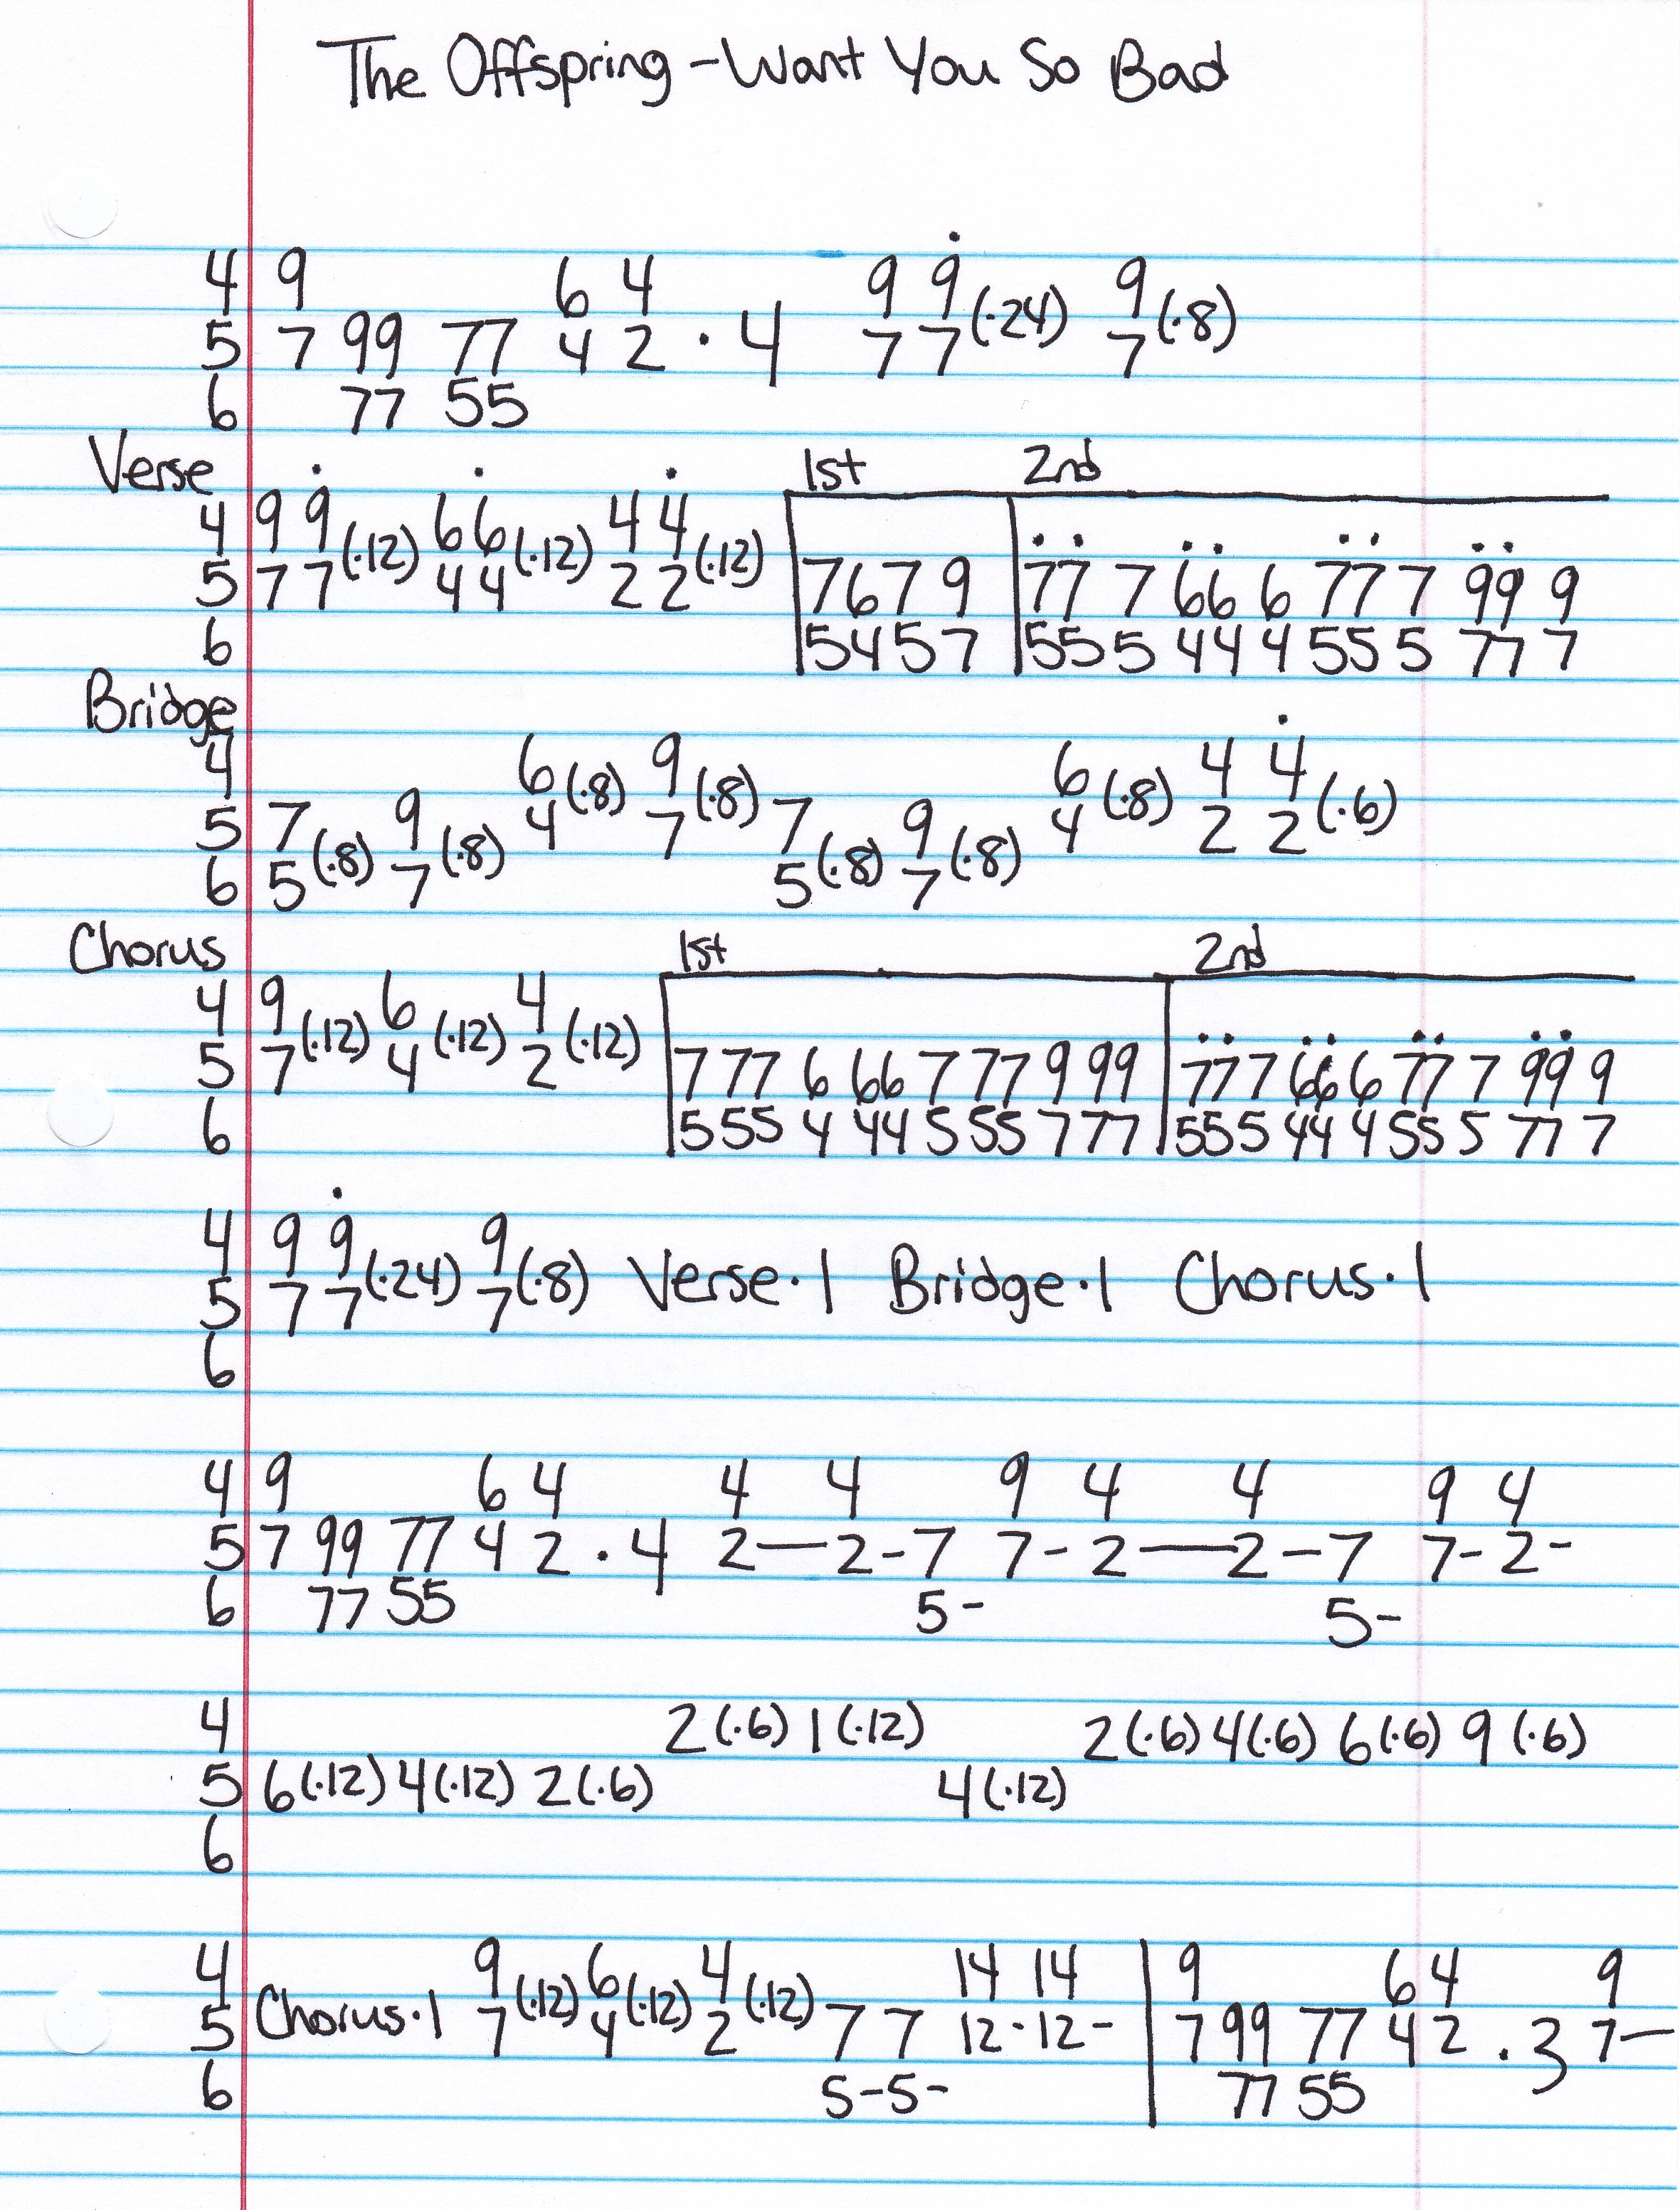 The Offspring - Want You So Bad
4 9 6 4 9 9 9
5 7 99 77 4 2 · 4 7 7 (·24) 7 (·8)
6 77 55
Verse 1st 2nd
4 9 9 6 6 4 4
5 7 7 (·12) 4 4 (·12) 2 2 (·12) 7 6 7 9 77 7 66 6 77 7 99 9
6 5 4 5 7 55 5 44 4 55 5 77 7
Bridge
4 6 (·8) 9 (·8) 6 (·8) 4 4
5 7 9 4 7 7 9 4 2 2 (·6)
6 5 (·8) 7 (·8) 5 (·8) 7 (·8)
Chorus 1st 2nd
4 9 6 4
5 7 (·12) 4 (·12) 2 (·12) 7 77 6 66 7 77 9 99 77 7 66 6 77 7 99 9
6 5 55 4 44 5 55 7 77 55 5 44 4 55 5 77 7
4 9 9 9
5 7 7 (·24) 7 (·8) Verse·1 Bridge·1 Chorus·1
6
4 9 6 4 4 4 9 4 4 9 4
5 7 99 77 4 2 · 4 2—2-7 7-2—2-7 7-2-
6 77 55 5- 5-
4 2 (·6) 1 (·12) 2 (·6) 4 (·6) 6 (·6) 9 (·6)
5 6 (·12) 4 (·12) 2 (·6) 4 (·12)
6
4 9 6 4 14 14 9 6 4 9
5 Chorus·1 7 (·12) 4 (·12) 2 (·12) 7 7 12-12- 7 99 77 4 2 · 3 7—
6 5-5- 77 55